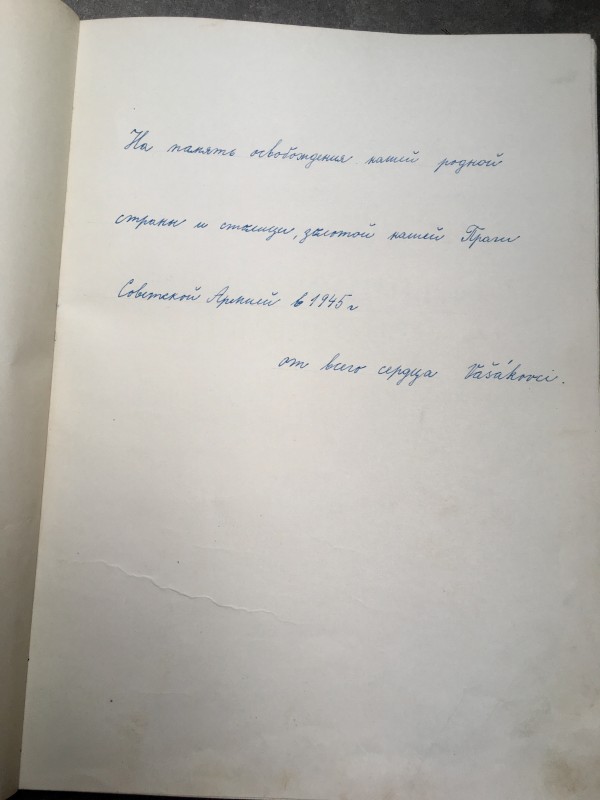 На память освобождения нашей родной
страны и столицы, золотой нашей Праги
Советской Армией в 1945 г
от всего сердца Vašákovi.